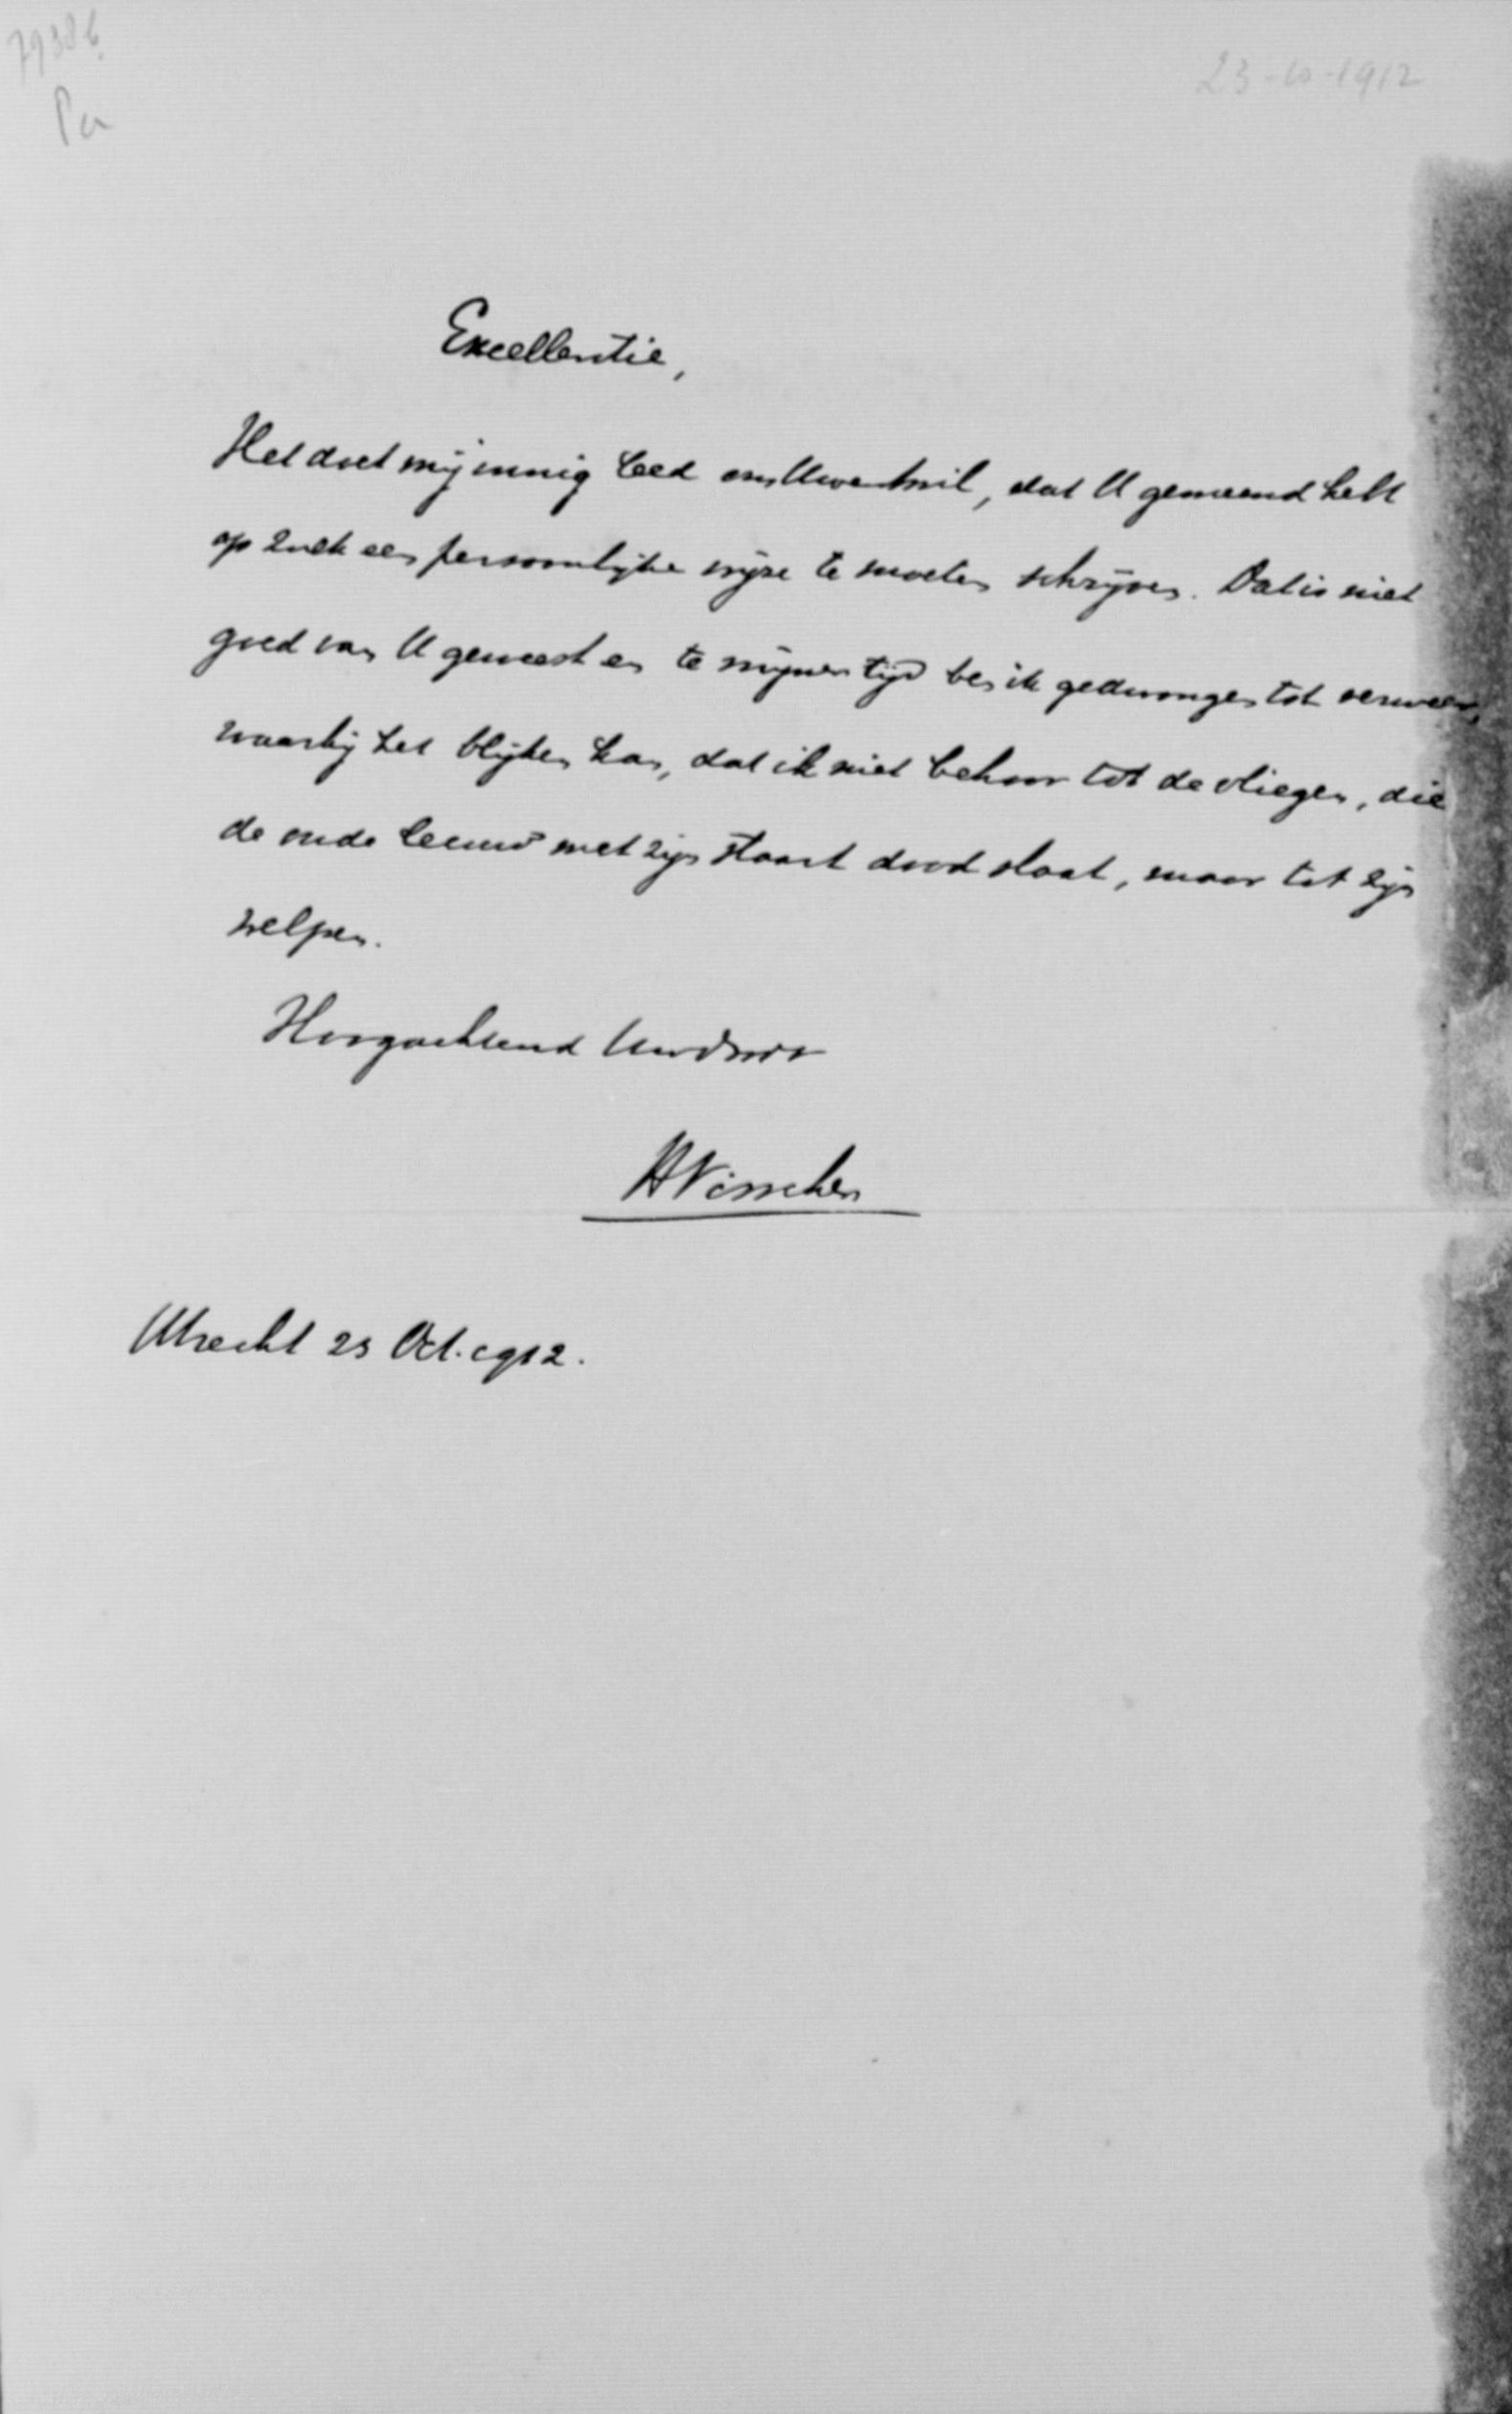 7938b
Pu
23-10-1912
Excellentie,
Het doet mij innig leed om Uwentwil, dat U gemeend hebt
op zulk een persoonlijke wijze te moeten schrijven. Dat is niet
goed van U geweest en te mijner tijd ben ik gedwongen tot verweer,
waarbij het blijken kan, dat ik niet behoor tot de vliegen, die
de oude leeuw met zijn staart dood slaat, maar tot zijn
welpen.
Hoogachtend Uw dw
HVisscher
Utrecht 23 Oct. 1912.